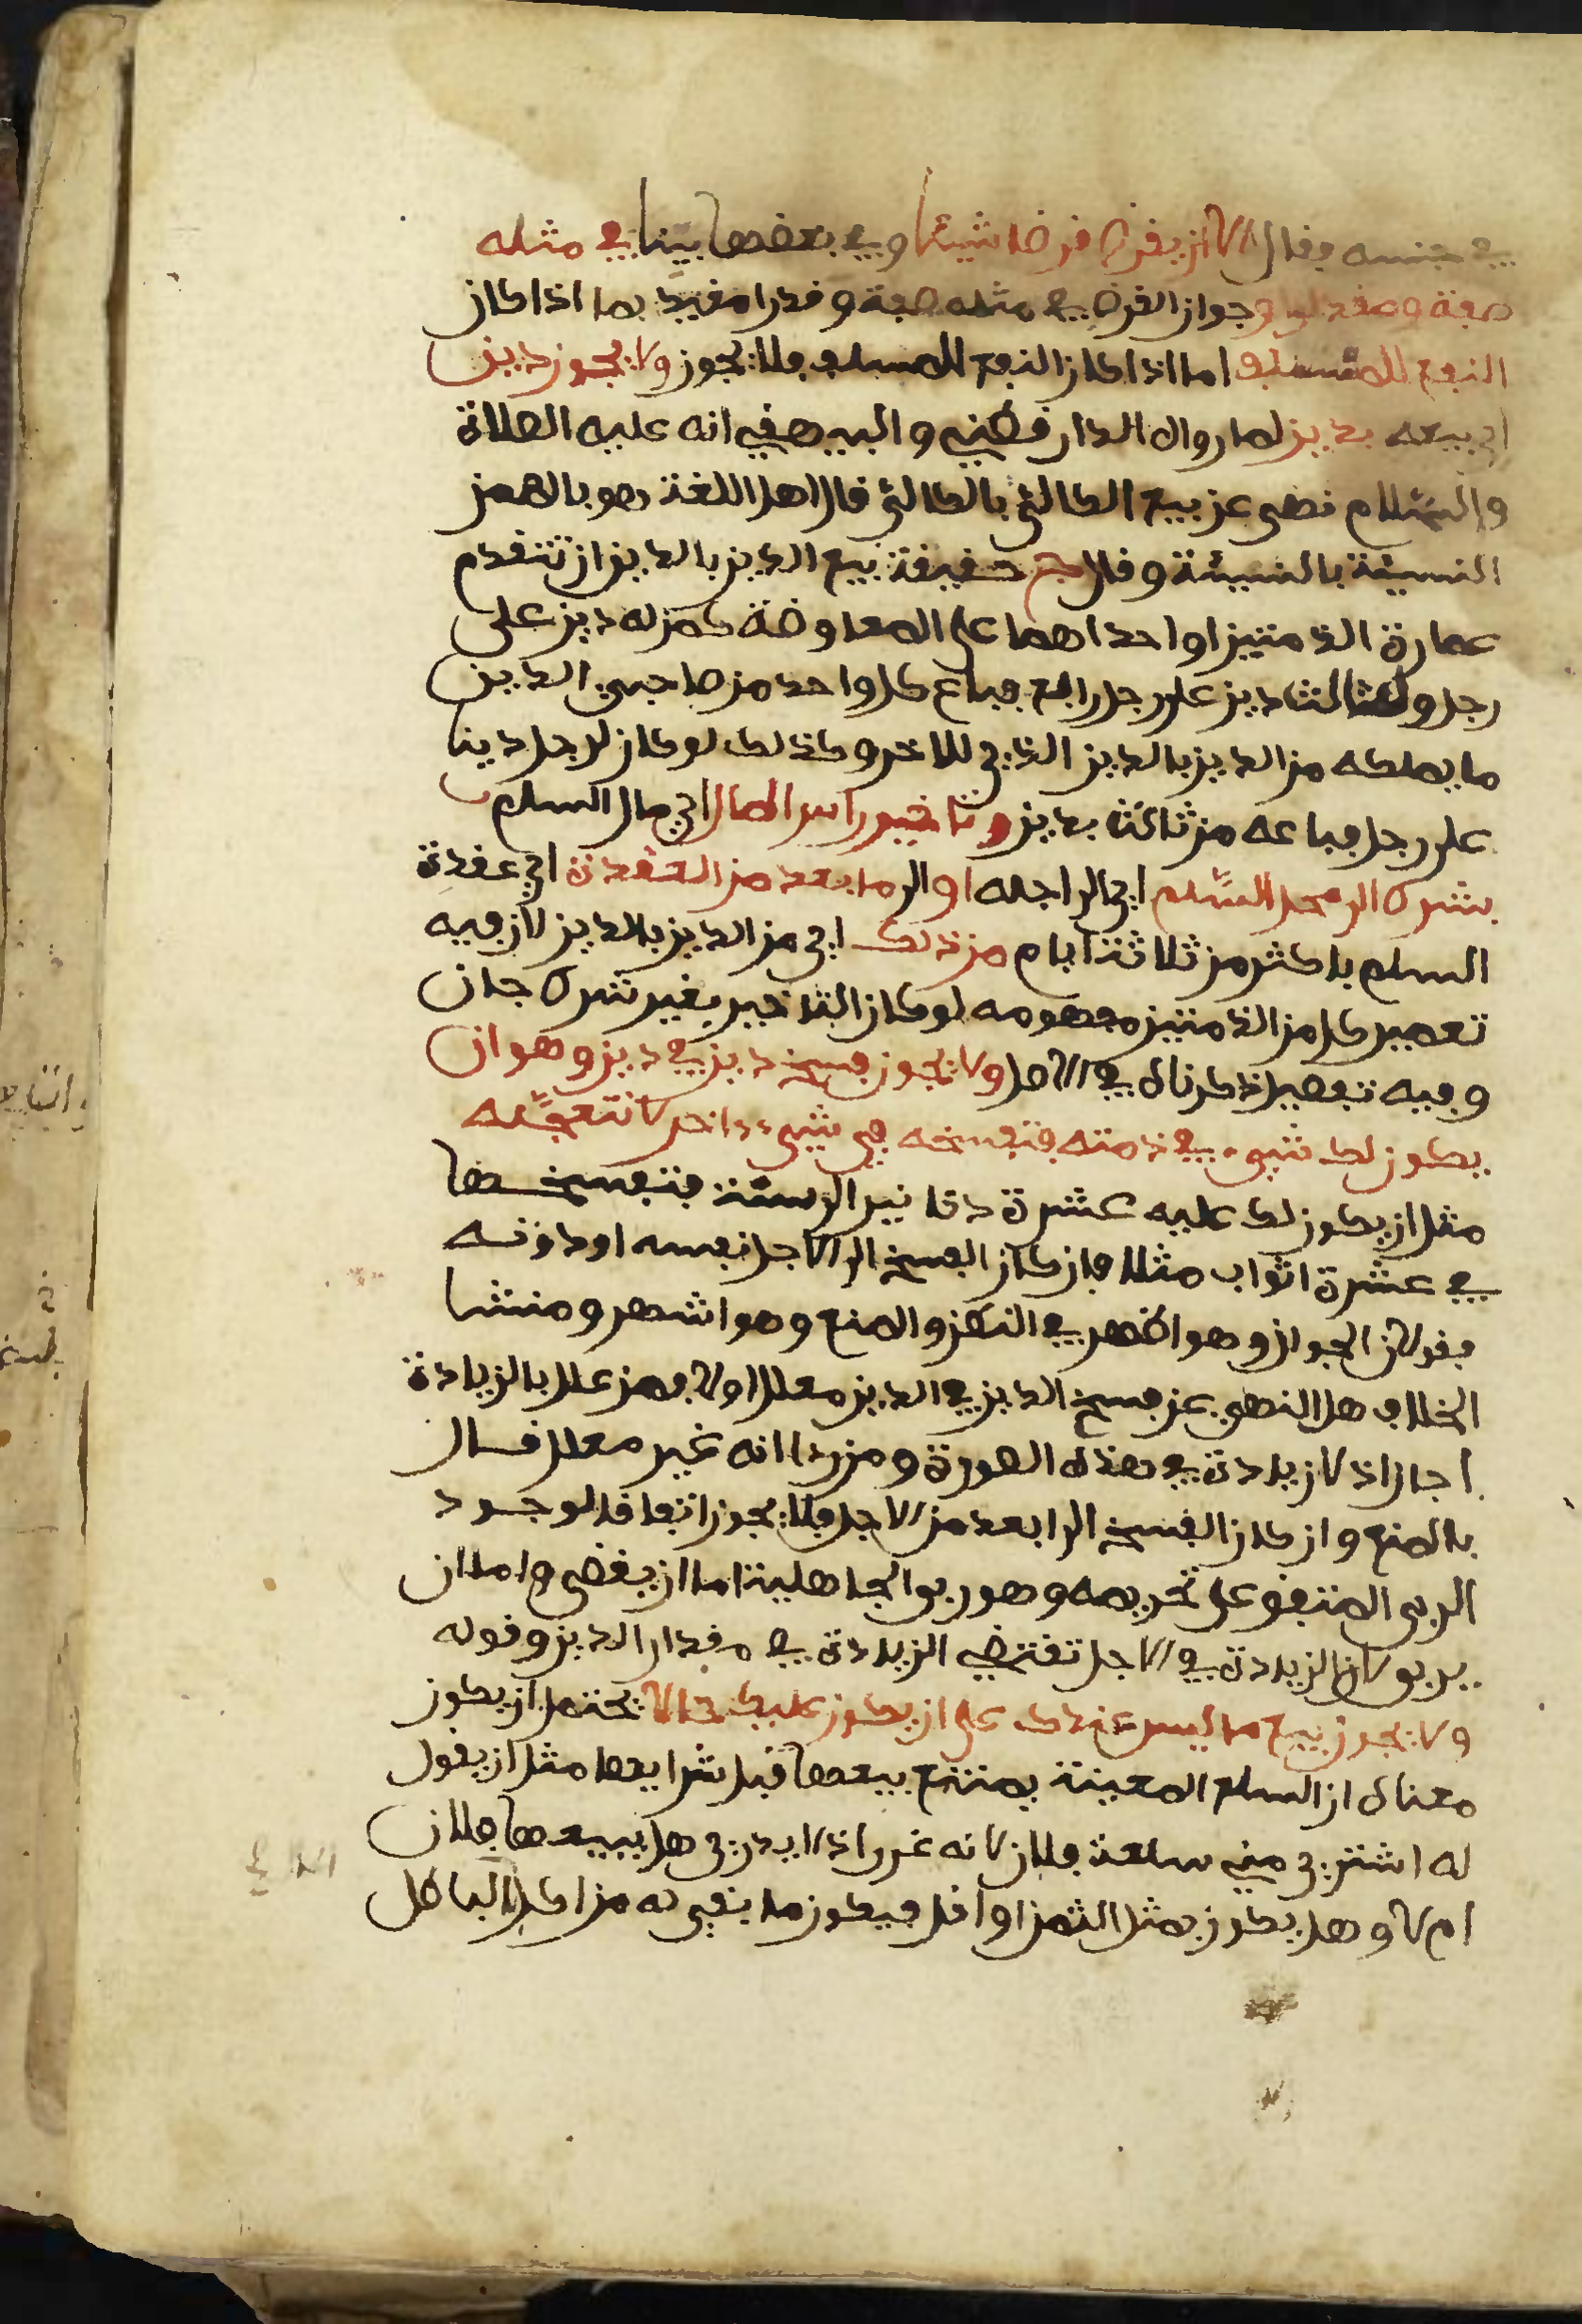 في جنسه فقال الا ان يقرض قرضا شيئا وفي بعضها بيّنا في مثله
صفة ومقدارا وجواز القرض في مثله صفة وقدرا مقيد بما اذا كان
النفع للمتسلف اما اذا كان النفع للمسلف فلا يجوز ولا يجوز دين
اي بيعه بدين لما رواه الدارقطني والبيهقي انه عليه الصلاة
والسّلام نهى عن بيع الكالئ بالكالئ قال اهل اللغة وهو بالهمز
النسيئة بالنسيئة وقال ج حقيقة بيع الدين بالدين ان تتقدم
عمارة الذمتين او احداهما على المعاوضة كمن له دين على
رجل ولثالث دين على رجل رابع فباع كل واحد من صاحبي الدين
ما يملكه من الدين بالدين الذي للاخر وكذلك لو كان لرجل دينا
على رجل فباعه من ثالث بدين وتاخير راس المال اي مال السلم
بشرط الى محل السّلم اي الى اجله او الى ما بعد من العقدة اي عقدة
السلم باكثر من ثلاثة ايام من ذلك اي من الدين بالدين لان فيه
تعمير كل من الذمتين مفهومه لو كان التاخير بغير شرط جاز
وفيه تفصيل ذكرناه في الاصل ولا يجوز فسخ دين في دين وهو ان
يكون لك شيء في ذمته فتفسخه في شيء ءاخر لا تتعجّله
مثل ان يكون لك عليه عشرة دنانير الى سنة فتفسخها
في عشرة اثواب مثلا فان كان الفسخ الى الاجل نفسه او دونه
فقولان الجواز وهو اظهر في النظر والمنع وهو اشهر ومنشا
الخلاف هل النهي عن فسخ الدين في الدين معلل او لا فمن علل بالزيادة
اجاز اذ لا زيادة في هذه الصورة ومن رءا انه غير معلل قال
بالمنع وان كان الفسخ الى ابعد من الاجل فلا يجوز اتفاقا لوجود
الربى المتفق على تحريمه وهو ربوا الجاهلية اما ان يقضي واما ان
يربو لان الزيادة في الاجل تقتضي الزيادة في مقدار الدين وقوله
ولا يجوز بيع ما ليس عندك على ان يكون عليك حالا يحتمل ان يكون
معناه ان السلع المعينة يمتنع بيعها قبل شرايها مثل ان يقول
له اشتري مني سلعة فلان لانه غرر اذ لا يدري هل يبيعها فلان
ام لا وهل يكون بمثل الثمن او اقل فيكون ما بقي له من اكل الباطل